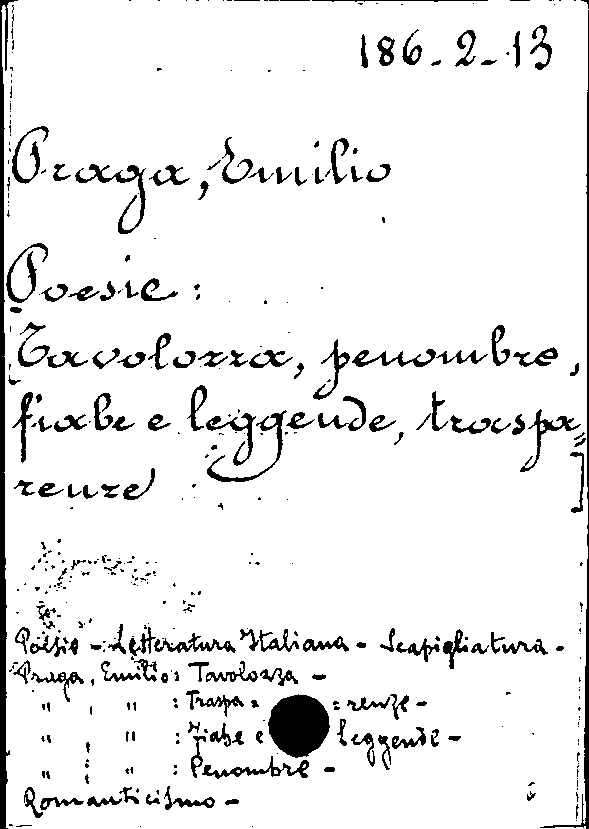 186-2-13
Praga, Emilio
Poesie:
Tavolozza, penombre,
fiabe e leggende, traspa=
renze
Poesie - Letteratura Italiana - Scapigliatura -
Praga, Emilio: Tavolozza -
" , " : Traspa= =renze -
" , " : Fiabe e Leggende -
" , " : Penombre -
Romanticismo -